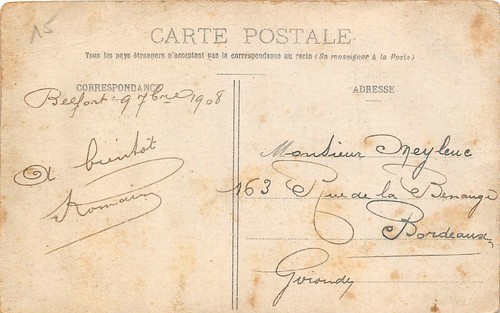 15
CARTE POSTALE
Tous les pays étrangers n'acceptent pas la correspondance au recto (Se renseigner à la Poste)
CORRESPONDANCE
Belfort 9 7bre 1908
A bientôt
Romain
ADRESSE
Monsieur Meyleuc
163 Rue de la Benauge
Bordeaux
Gironde